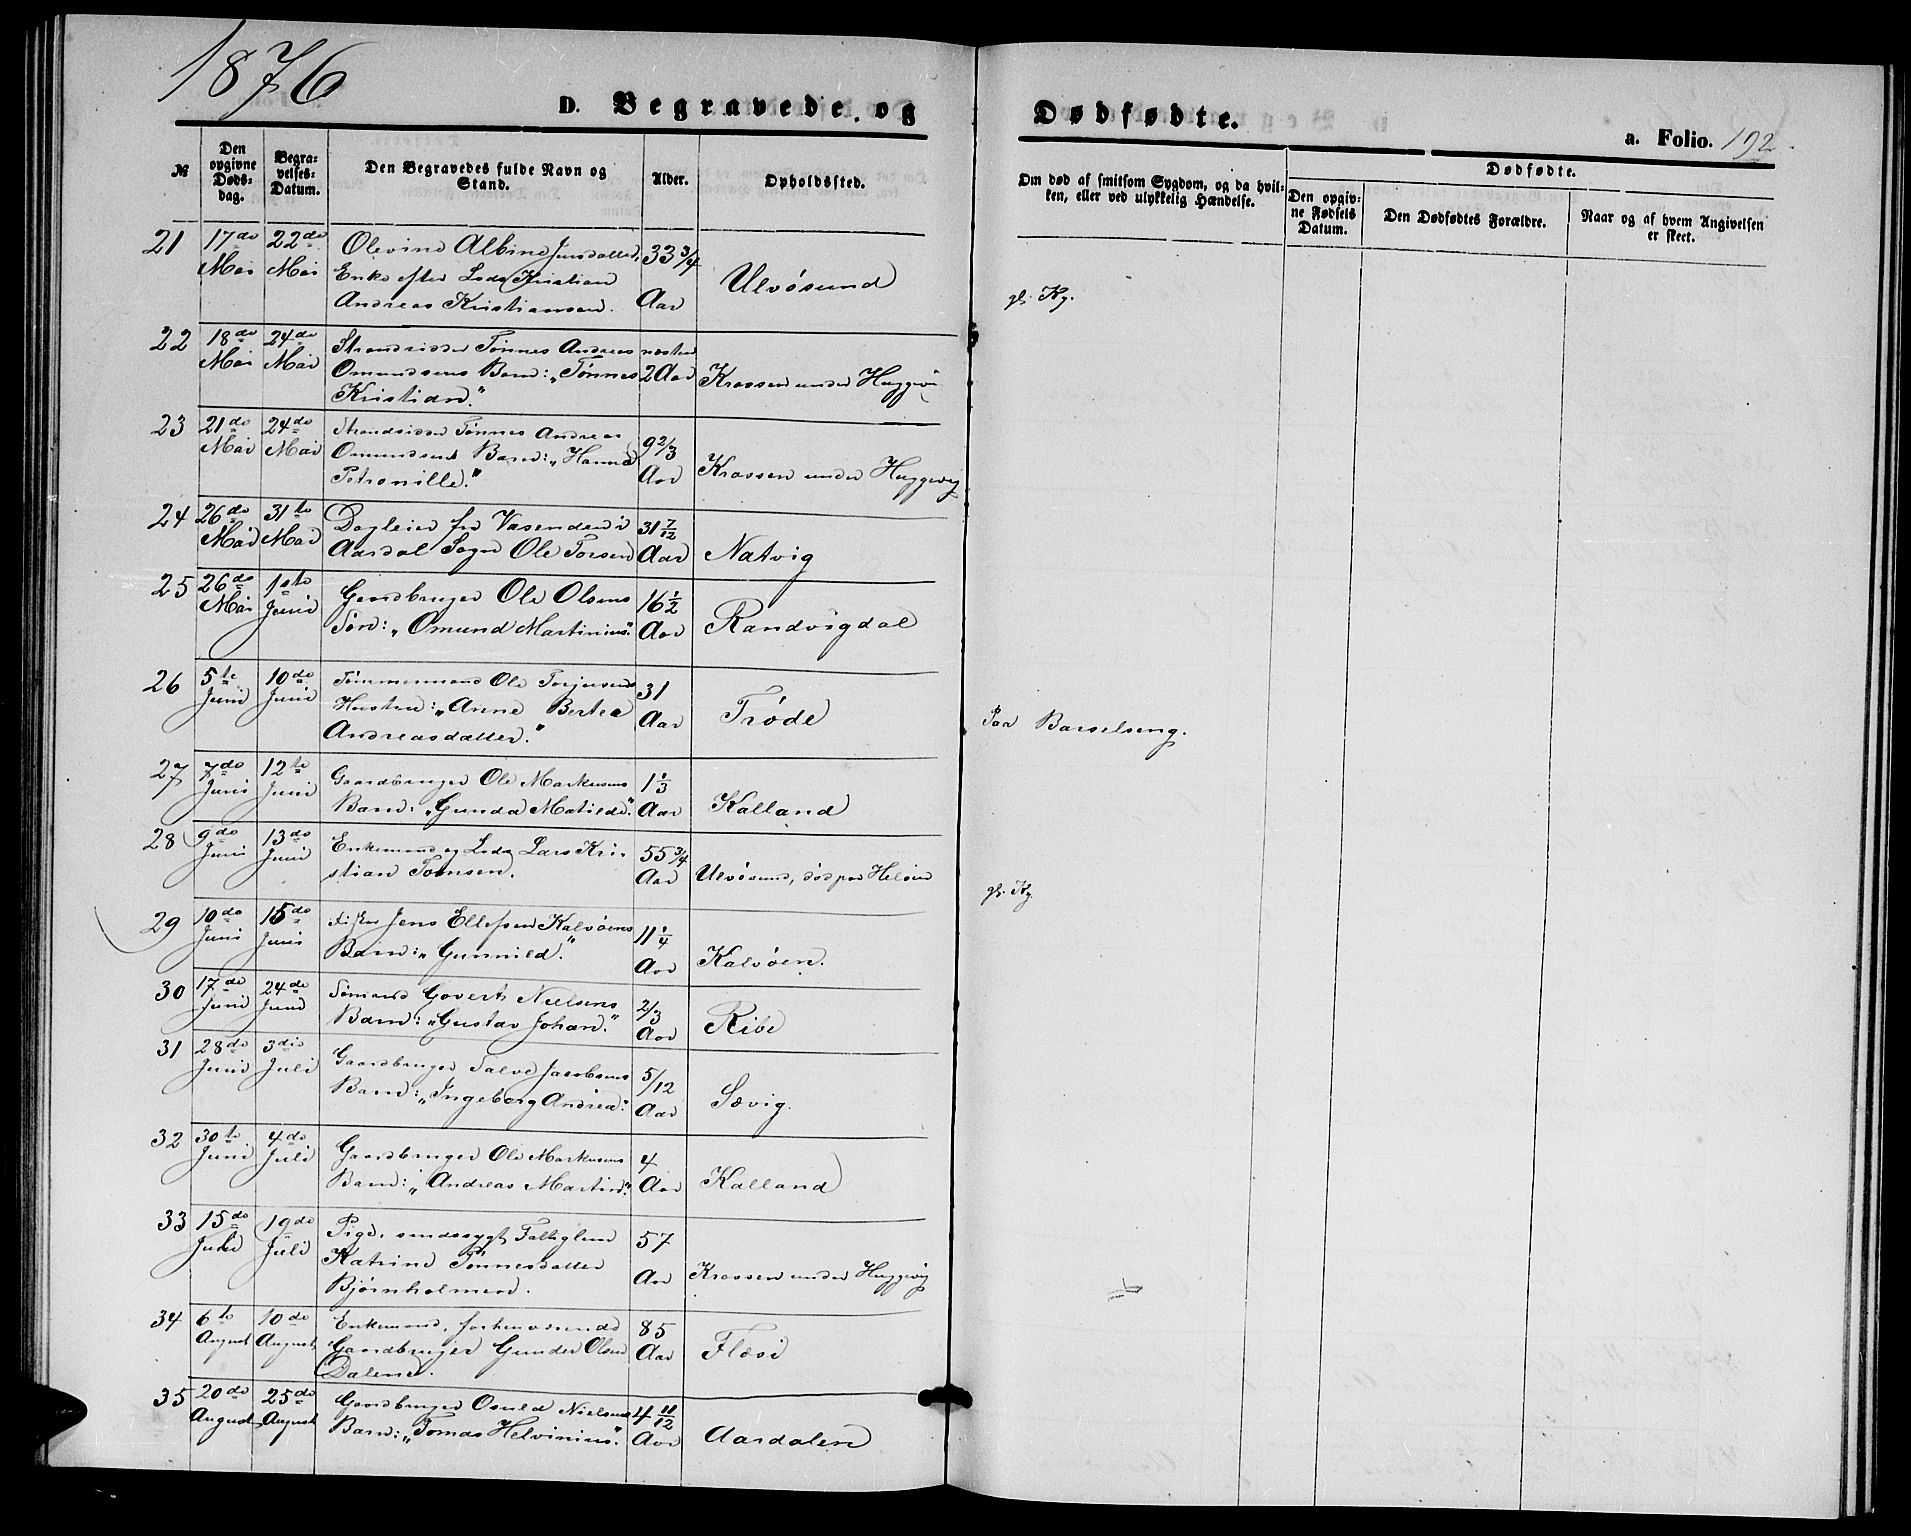 1876
D. Begravede og Dødfødte.
a. Folio. 192.
№
Den opgivne Døds-dag.
Begra-velses-Datum.
Den Begravedes fulde Navn og Stand.
Alder.
Opholdssted.
Om død af smitsom Sygdom, og da hvil-
ken, eller ved ulykkelig Hændelse.
Dødfødte.
Den opgiv-ne Fødsels Datum.
Den Dødfødtes Forældre.
Naar og af hvem Angivelsen er skeet.
21 17de 22de Olevine Albine Jensdatter, 33 3/4
Mai Mai Enke efter Lods Kristian Ulvøsund
Andreas Kristiansen. Aar gl. Kg.
22 18de 24de Strandsidder Tønnes Andreas næsten
Mai Mai Omundsens Barn: „Tønnes 2 Aar Krossen under Huggevig
Kristian."
23 21de 24de Strandsidder Tønnes Andreas 9 2/3
Mai Mai Omundsens Barn: „Hanna Aar Krossen under Huggevig
Petronille."
24 26de 31te Dagleier fra Vasenden i 31 7/12
Mai Mai Aardal Sogn Ole Torsen Aar Natvig
25 26de 1ste Gaardbruger Ole Olsens 16 1/2
Mai Juni Søn: „Omund Martinius." Aar Randvigdal
26 5te 10de Tømmermand Ole Torjusens 31
Juni Juni Hustru: „Anne Bertea Aar Trøde Paa Barselseng.
Andreasdatter."
27 7de 12te Gaardbruger Ole Markusens 1 1/3
Juni Juni Barn: „Gunda Matilde." Aar Kalland
28 9de 13de Enkemand og Lods Lars Kri- 55 3/4
Juni Juni stian Tomsen. Aar Ulvøsund, død paa Heløen gl. Kg.
29 10de 15de Fisker Jens Ellefsen Kalvøens 11 1/4
Juni Juni Barn: „Gunnild." Aar Kalvøen.
30 17de 24de Sømand Govert Nielsens 2/3
Juni Juni Barn: „Gustav Johan." Aar Ribe
31 28de 3die Gaardbruger Salve Jacobsens 5/12
Juni Juli Barn: „Ingeborg Andrea." Aar Sævig.
32 30te 4de Gaardbruger Ole Markusens 4
Juni Juli Barn: „Andreas Martin." Aar Kalland
33 15de 19de Pige, sindssygt Fattiglem 57
Juli Juli Katrine Tønnesdatter Aar Krossen under Huggevig
Bjørnholmen.
34 6te 10de Enkemand, forhenværende 85
August August Gaardbruger Gunder Olsen Aar Flæsi
Dalene.
35 20de 25de Gaardbruger Osuld Nielsens 4 11/12
August August Barn: „Tomas Helvinius." Aar Aardalen